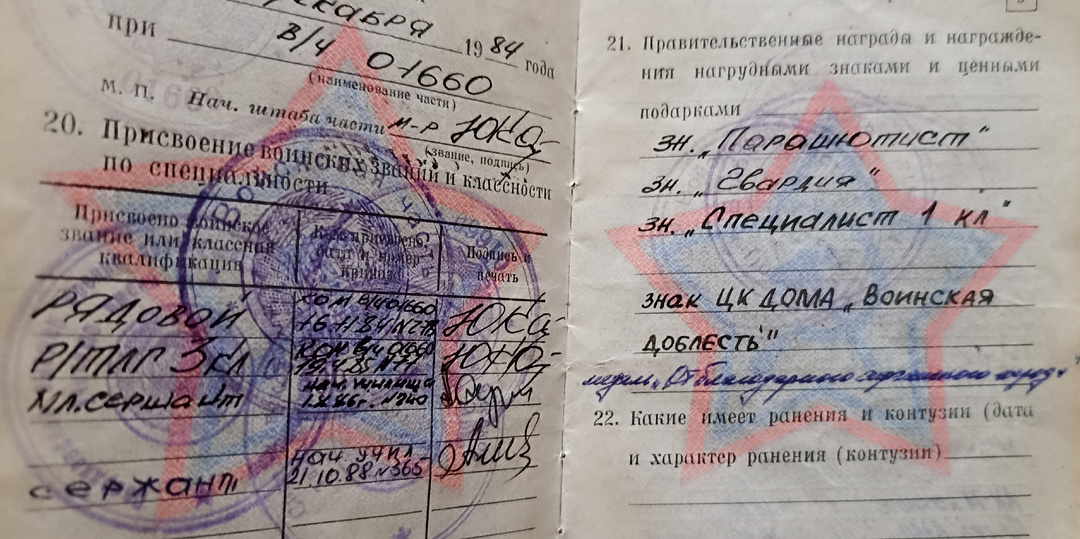 декабря 1984 года
при в/ч 01660
(наименование части)
М. П. Нач. штаба части м-р Юка
(звание, подпись)
20. Присвоение воинских званий и классности
по специальности
Присвоено воинское
звание или классная
квалификация
Кем присвоено,
дата и номер
приказа
Подпись и
печать
РЯДОВОЙ
КОМ В/Ч 01660
Р/ТЛГ 3 кл
КОМ В/Ч 01660
МЛ. сержант
НАЧ. УЧИЛИЩА
сержант
НАЧ УЧИЛ-
21.10.88 N365
21. Правительственные награды и награжде-
ния нагрудными знаками и ценными
подарками
зн. „Парашютист“
зн. „Гвардия“
зн. „Специалист 1 кл“
знак ЦК ДОМА „Воинская
доблесть“
медаль „От благодарного афганского народа“
22. Какие имеет ранения и контузии (дата
и характер ранения (контузии)